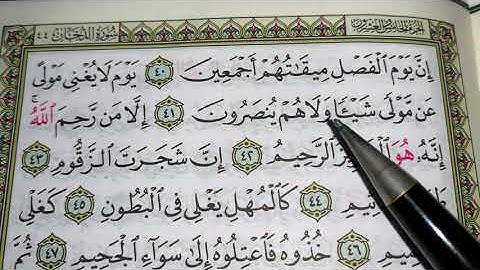 الجزء الخامس والعشرون سورة الدخان ٤٤
إِنَّ يَوْمَ ٱلْفَصْلِ مِيقَـٰتُهُمْ أَجْمَعِينَ ٤٠ يَوْمَ لَا يُغْنِى مَوْلًى
عَن مَّوْلًى شَيْـًٔا وَلَا هُمْ يُنصَرُونَ ٤١ إِلَّا مَن رَّحِمَ ٱللَّهُ ۚ
إِنَّهُۥ هُوَ ٱلرَّحِيمُ ٤٢ إِنَّ شَجَرَتَ ٱلزَّقُّومِ ٤٣
كَٱلْمُهْلِ يَغْلِى فِى ٱلْبُطُونِ ٤٥ كَغَلْىِ
٤٦ خُذُوهُ فَٱعْتِلُوهُ إِلَىٰ سَوَآءِ ٱلْجَحِيمِ ٤٧ ثُمَّ